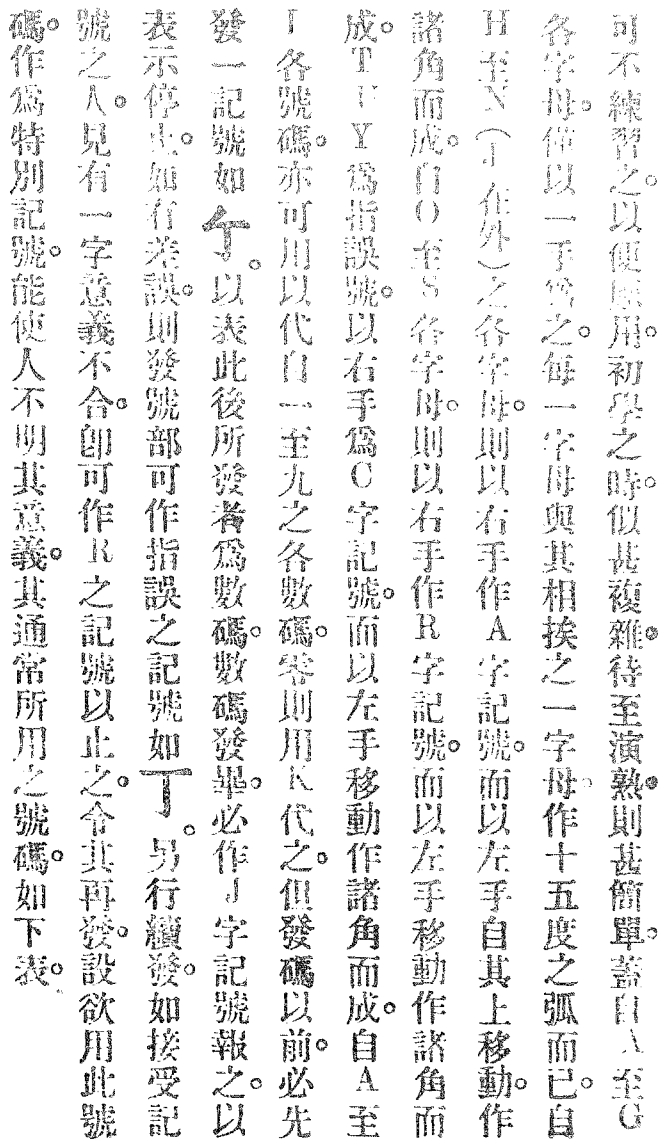 可不練習之。以便應用。初學之時。似甚複雜。待至演熟。則甚簡單。蓋自A至G
各字母。僅以一手爲之。每一字母與其相挨之一字母。作十五度之弧而已。自
H至N（J作外）之各字母。則以右手作A字記號。而以左手自其上移動。作
諸角而成。自O至S各字母。則以右手作R字記號。而以左手移動作諸角而
成。T U Y爲指誤號。以右手爲C字記號。而以左手移動作諸角而成。自A至
I各號碼。亦可用以代自一至九之各數碼。零則用K代之。但發碼以前。必先
發一記號如。以表此後所發者爲數碼。數碼發畢。必作J字記號報之。以
表示停止。如有差誤。則發號部可作指誤之記號如。另行續發。如接受記
號之人。見有一字意義不合。卽可作R之記號以止之。令其再發。設欲用此號
碼。作爲特別記號。能使人不明其意義。其通常所用之號碼。如下表。